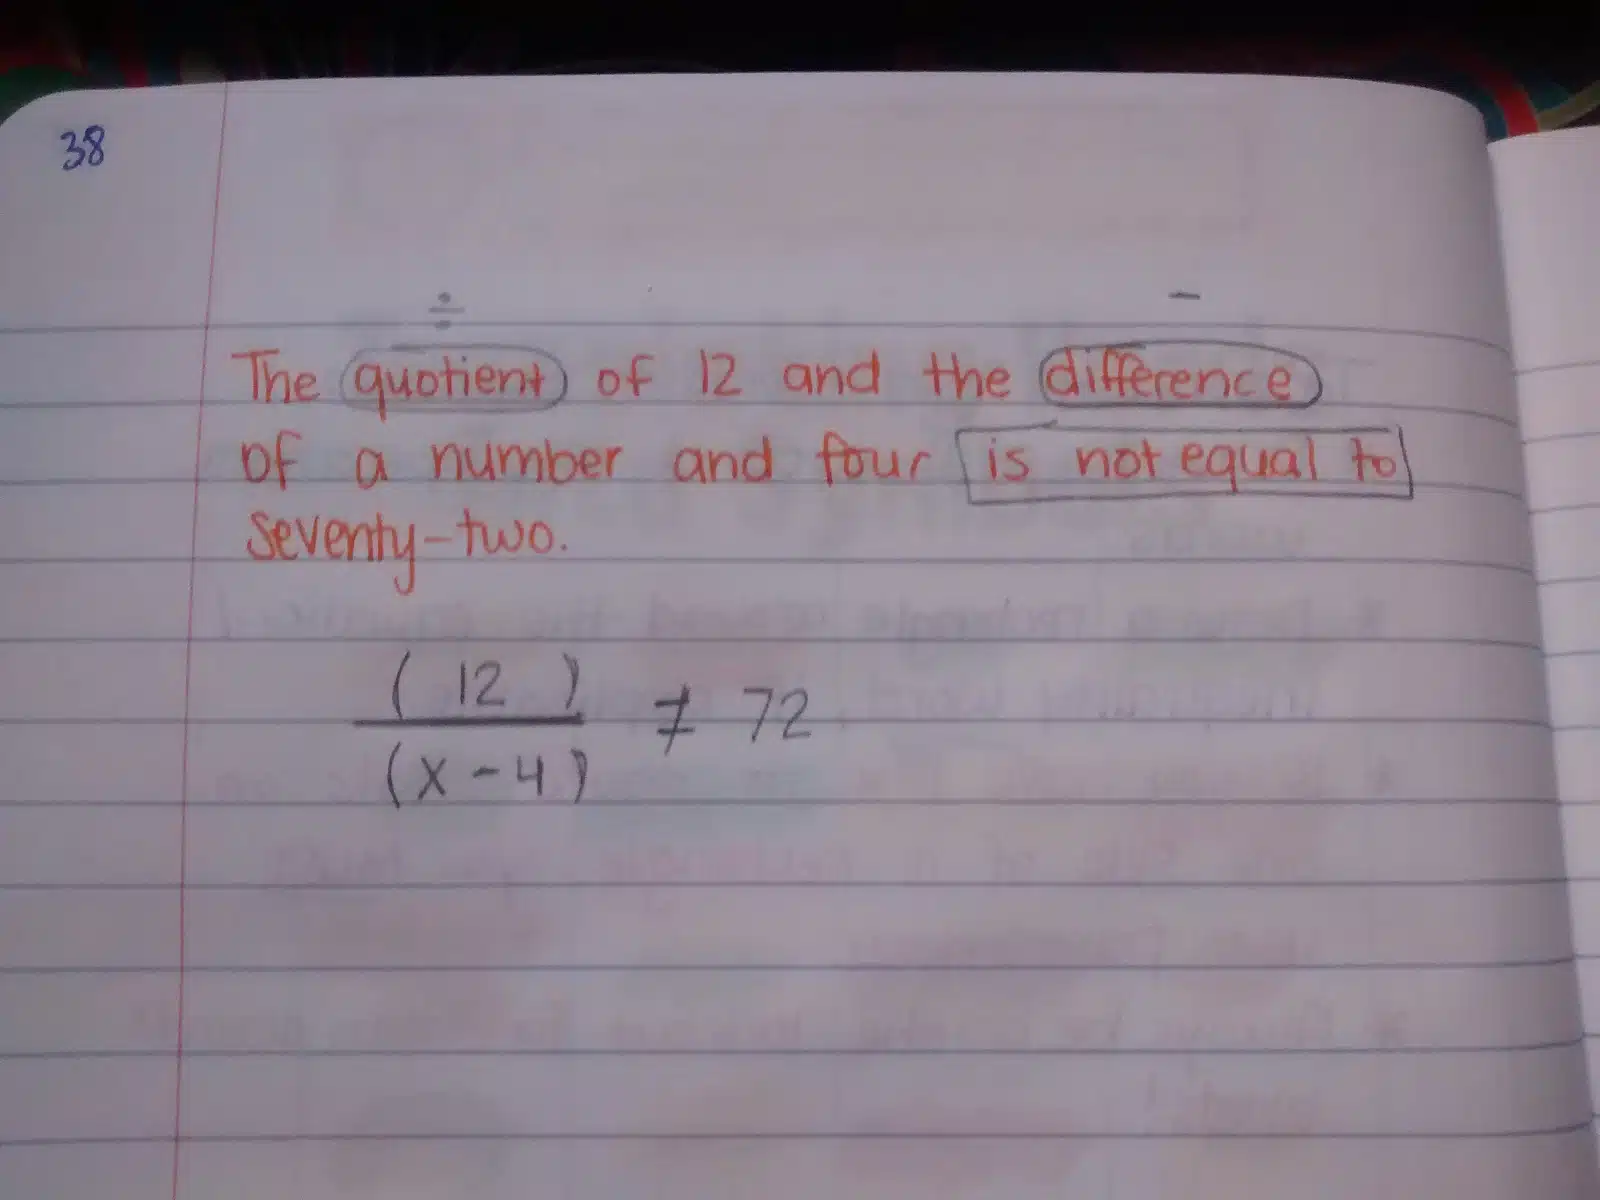 38
÷ −
The quotient of 12 and the difference
of a number and four is not equal to
seventy-two.
( 12 )
≠ 72
(x - 4)